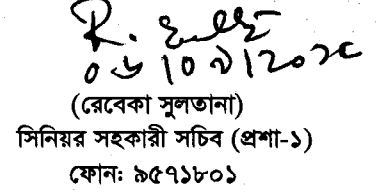 ০৬/০৯/২০২০
(রেবেকা সুলতানা)
সিনিয়র সহকারী সচিব (প্রশা-১)
ফোনঃ ৯৫৭১৮০১